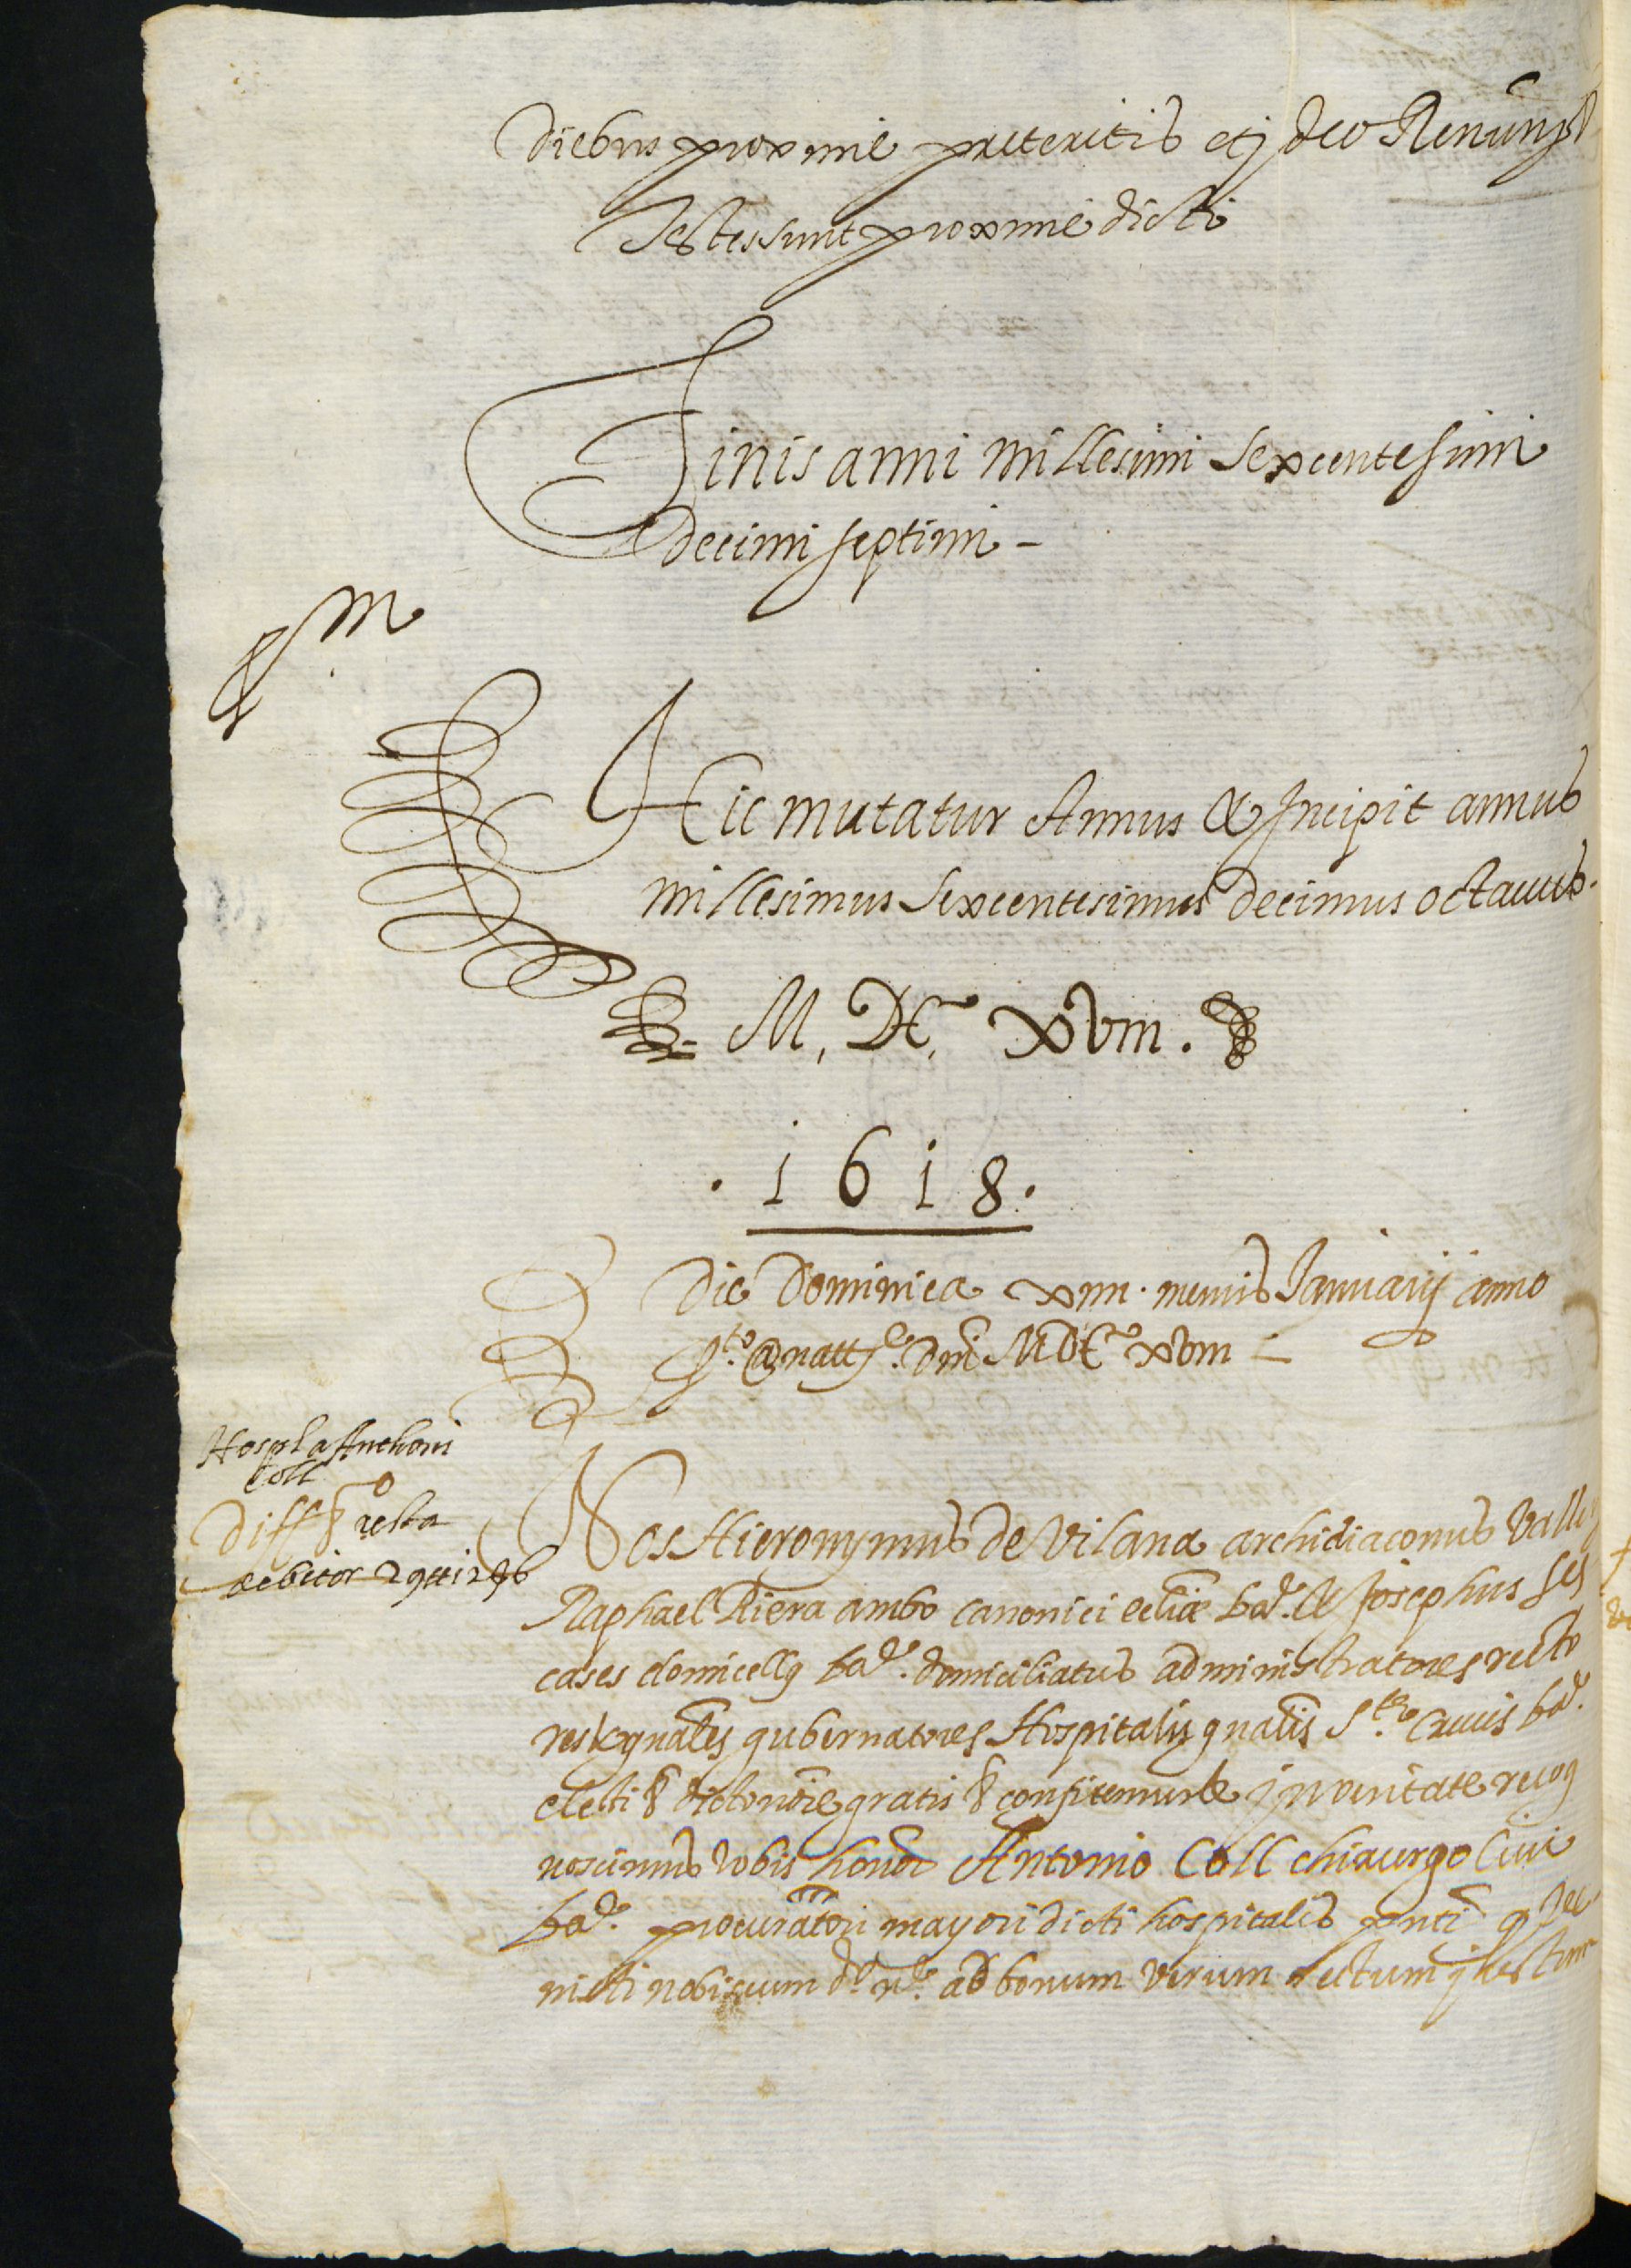 diebus proxime preteritis et ideo Renun
Testes sunt proxime dicti
Finis anni millesimi sexcentesimi
decimi septimi -
m
Hic mutatur Annus & Incipit annus
millesimus sexcentesimus decimus octauus.
M. DC. xviii.
. 1 6 1 8 .
Die Dominica xiiii. mensis Januarij anno
dni MDC xviii -
Hospl a Anthoni
Coll
Diff resta
debitor
Nos Hieronymus de Vilana archidiaconus Vall
Raphael Riera ambo canonici eccliæ bar. & Josephus
cases domicellus bar. domiciliatus administratores recto
res gubernatores Hospitalis gnalis Stæ Crucis bar.
electi gratis confitemur & in veritate recog
noscimus vobis honor Antonio Coll chirurgo Ciui
bar. procuratori mayori dicti hospitalis pnti
nobiscum ad bonum verum rectum